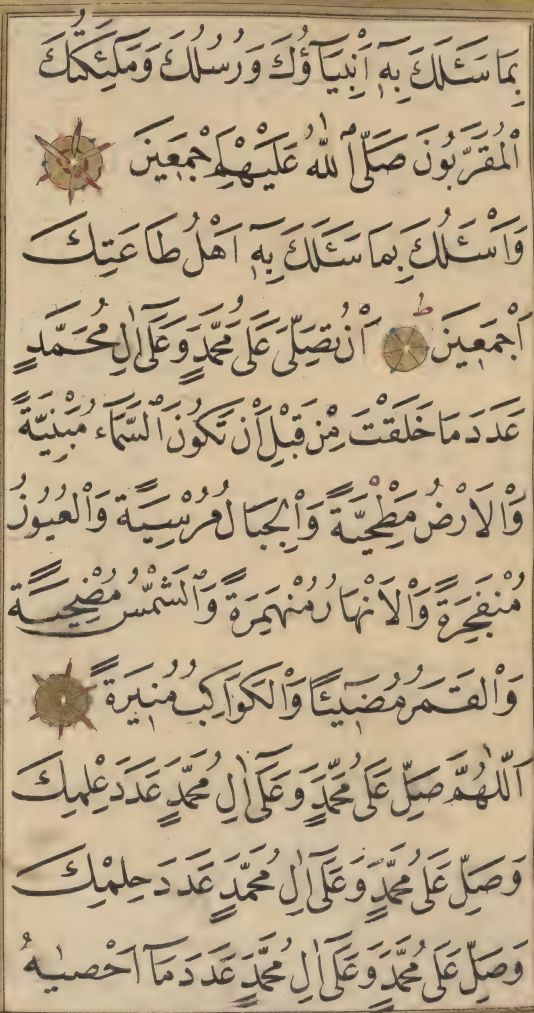 بِمَا سَئَلَكَ بِهٖٓ اَنْبِيَآؤُكَ وَرُسُلُكَ وَمَلٰٓئِكَتُكَ
الْمُقَرَّبُونَ صَلَّى اللّٰهُ عَلَيْهِمْ اَجْمَعِينَ
وَاَسْئَلُكَ بِمَا سَئَلَكَ بِهٖٓ اَهْلُ طَاعَتِكَ
اَجْمَعِينَ ط اَنْ تُصَلِّىَ عَلٰى مُحَمَّدٍ وَعَلٰٓى اٰلِ مُحَمَّدٍ
عَدَدَ مَا خَلَقْتَ مِنْ قَبْلِ اَنْ تَكُونَ السَّمَآءُ مَبْنِيَّةً
وَالْاَرْضُ مَطْحِيَّةً وَالْجِبَالُ مُرْسِيَةً وَالْعُيُونُ
مُنْفَجِرَةً وَالْاَنْهَارُ مُنْهَمِرَةً وَالشَّمْسُ مُضْحِيَةً
وَالْقَمَرُ مُضِيئًا وَالْكَوَاكِبُ مُنِيرَةً
اَللّٰهُمَّ صَلِّ عَلٰى مُحَمَّدٍ وَعَلٰٓى اٰلِ مُحَمَّدٍ عَدَدَ عِلْمِكَ
وَصَلِّ عَلٰى مُحَمَّدٍ وَعَلٰٓى اٰلِ مُحَمَّدٍ عَدَدَ حِلْمِكَ
وَصَلِّ عَلٰى مُحَمَّدٍ وَعَلٰٓى اٰلِ مُحَمَّدٍ عَدَدَ مَآ اَحْصٰيهُ